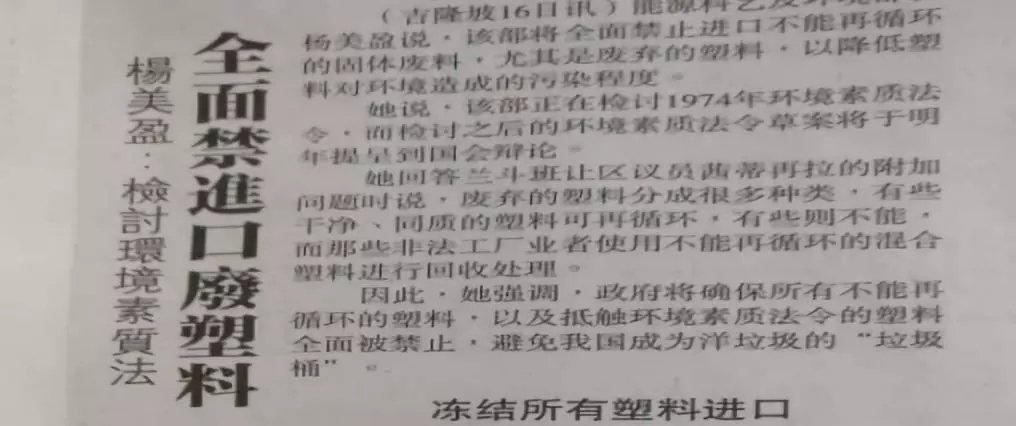 全面禁進口廢塑料
楊美盈：檢討環境素質法
（吉隆坡16日讯）能源科艺及环境部
杨美盈说，该部将全面禁止进口不能再循环
的固体废料，尤其是废弃的塑料，以降低塑
料对环境造成的污染程度。
她说，该部正在检讨1974年环境素质法
令，而检讨之后的环境素质法令草案将于明
年提呈到国会辩论。
她回答兰斗班让区议员茜蒂再拉的附加
问题时说，废弃的塑料分成很多种类，有些
干净、同质的塑料可再循环，有些则不能，
而那些非法工厂业者使用不能再循环的混合
塑料进行回收处理。
因此，她强调，政府将确保所有不能再
循环的塑料，以及抵触环境素质法令的塑料
全面被禁止，避免我国成为洋垃圾的“垃圾
桶”。
冻结所有塑料进口